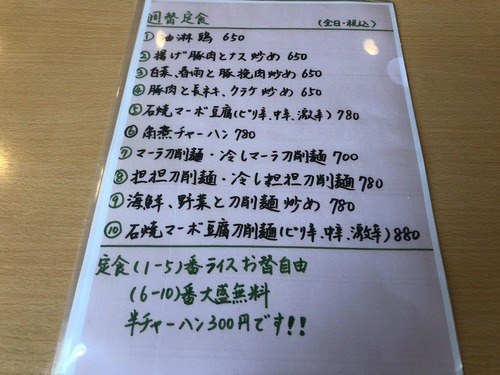 週替定食 (全日・税込)
① 油淋鶏 650
② 揚げ豚肉とナス炒め 650
③ 白菜、春雨と豚挽肉炒め 650
④ 豚肉と長ネギ、クラゲ炒め 650
⑤ 石焼マーボ豆腐(ピリ辛、中辛、激辛) 780
⑥ 角煮チャーハン 780
⑦ マーラ刀削麺・冷しマーラ刀削麺 700
⑧ 担担刀削麺・冷し担担刀削麺 780
⑨ 海鮮、野菜と刀削麺炒め 780
⑩ 石焼マーボ豆腐刀削麺(ピリ辛、中辛、激辛) 880
定食(1-5)番ライスお替自由
(6-10)番大盛無料
半チャーハン300円です!!